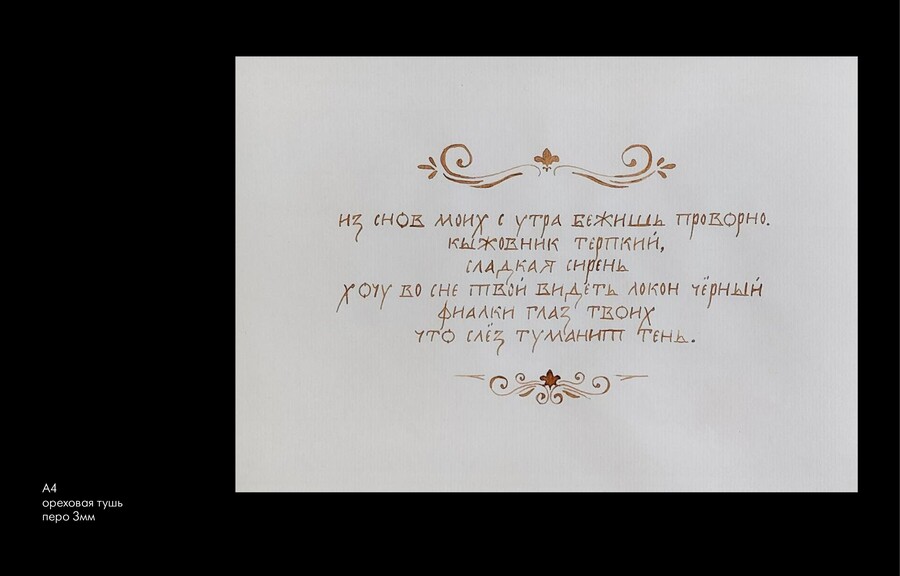 из снов моих с утра бежишь проворно.
кыжовник терпкий,
сладкая сирень
хочу во сне твой видеть локон чёрный
фиалки глаз твоих
что слёз туманит тень.
А4
ореховая тушь
перо 3мм